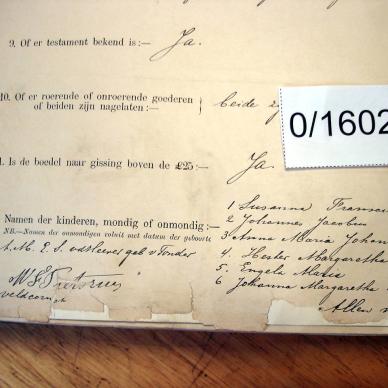 9. Of er testament bekend is:— Ja.
10. Of er roerende of onroerende goederen
of beiden zijn nagelaten:— } beide
0/1602
1. Is de boedel naar gissing boven de £25:— Ja.
Namen der kinderen, mondig of onmondig:—
NB.—Namen der onmondigen voluit met datum der geboorte
1 Susanna Franci
2 Johannes Jacobus
3 Anna Maria Johan
4. Hester Margaretha
5. Engela Maria
6 Johanna Margaretha
Allen
A. M. E. S. v Tonder
veldcornet